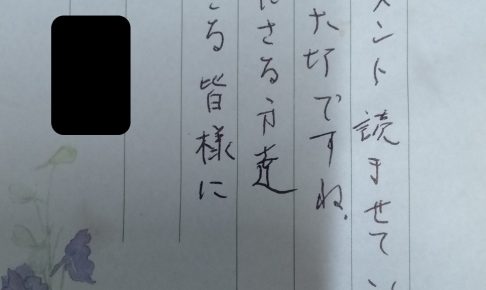 メント読ませて
大切ですね.
さる方達
る皆様に